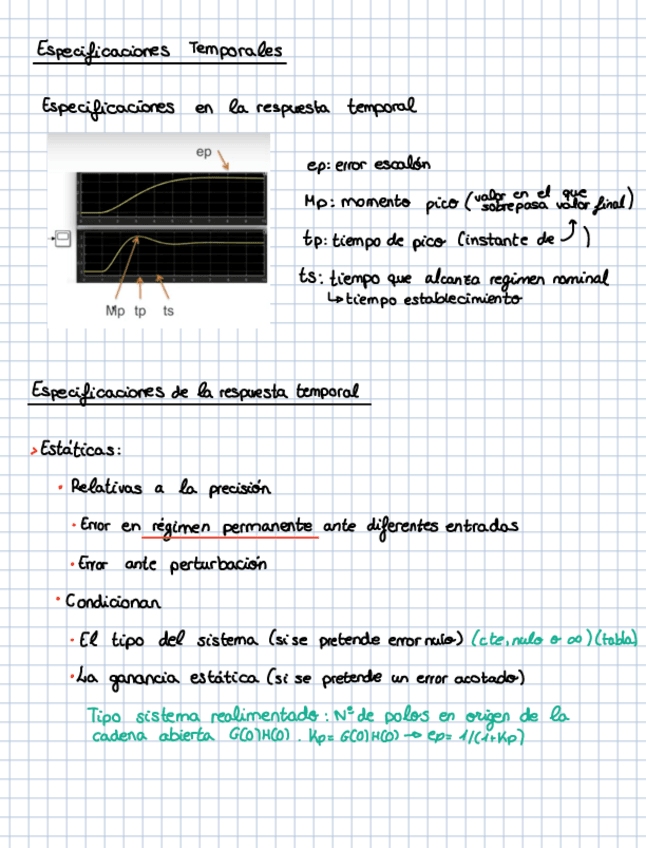 Especificaciones Temporales
Especificaciones en la respuesta temporal
ep
Mp tp ts
ep: error escalón
Mp: momento pico (valor en el que sobrepasa valor final)
tp: tiempo de pico (instante de )
ts: tiempo que alcanza regimen nominal
↳ tiempo establecimiento
Especificaciones de la respuesta temporal
> Estáticas:
· Relativas a la precisión
· Error en régimen permanente ante diferentes entradas
· Error ante perturbación
· Condicionan
· El tipo del sistema (si se pretende error nulo) (cte, nulo o ∞) (tabla)
· La ganancia estática (si se pretende un error acotado)
Tipo sistema realimentado: Nº de polos en origen de la
cadena abierta G(0)H(0). Kp= G(0)H(0) → ep= 1/(1+Kp)